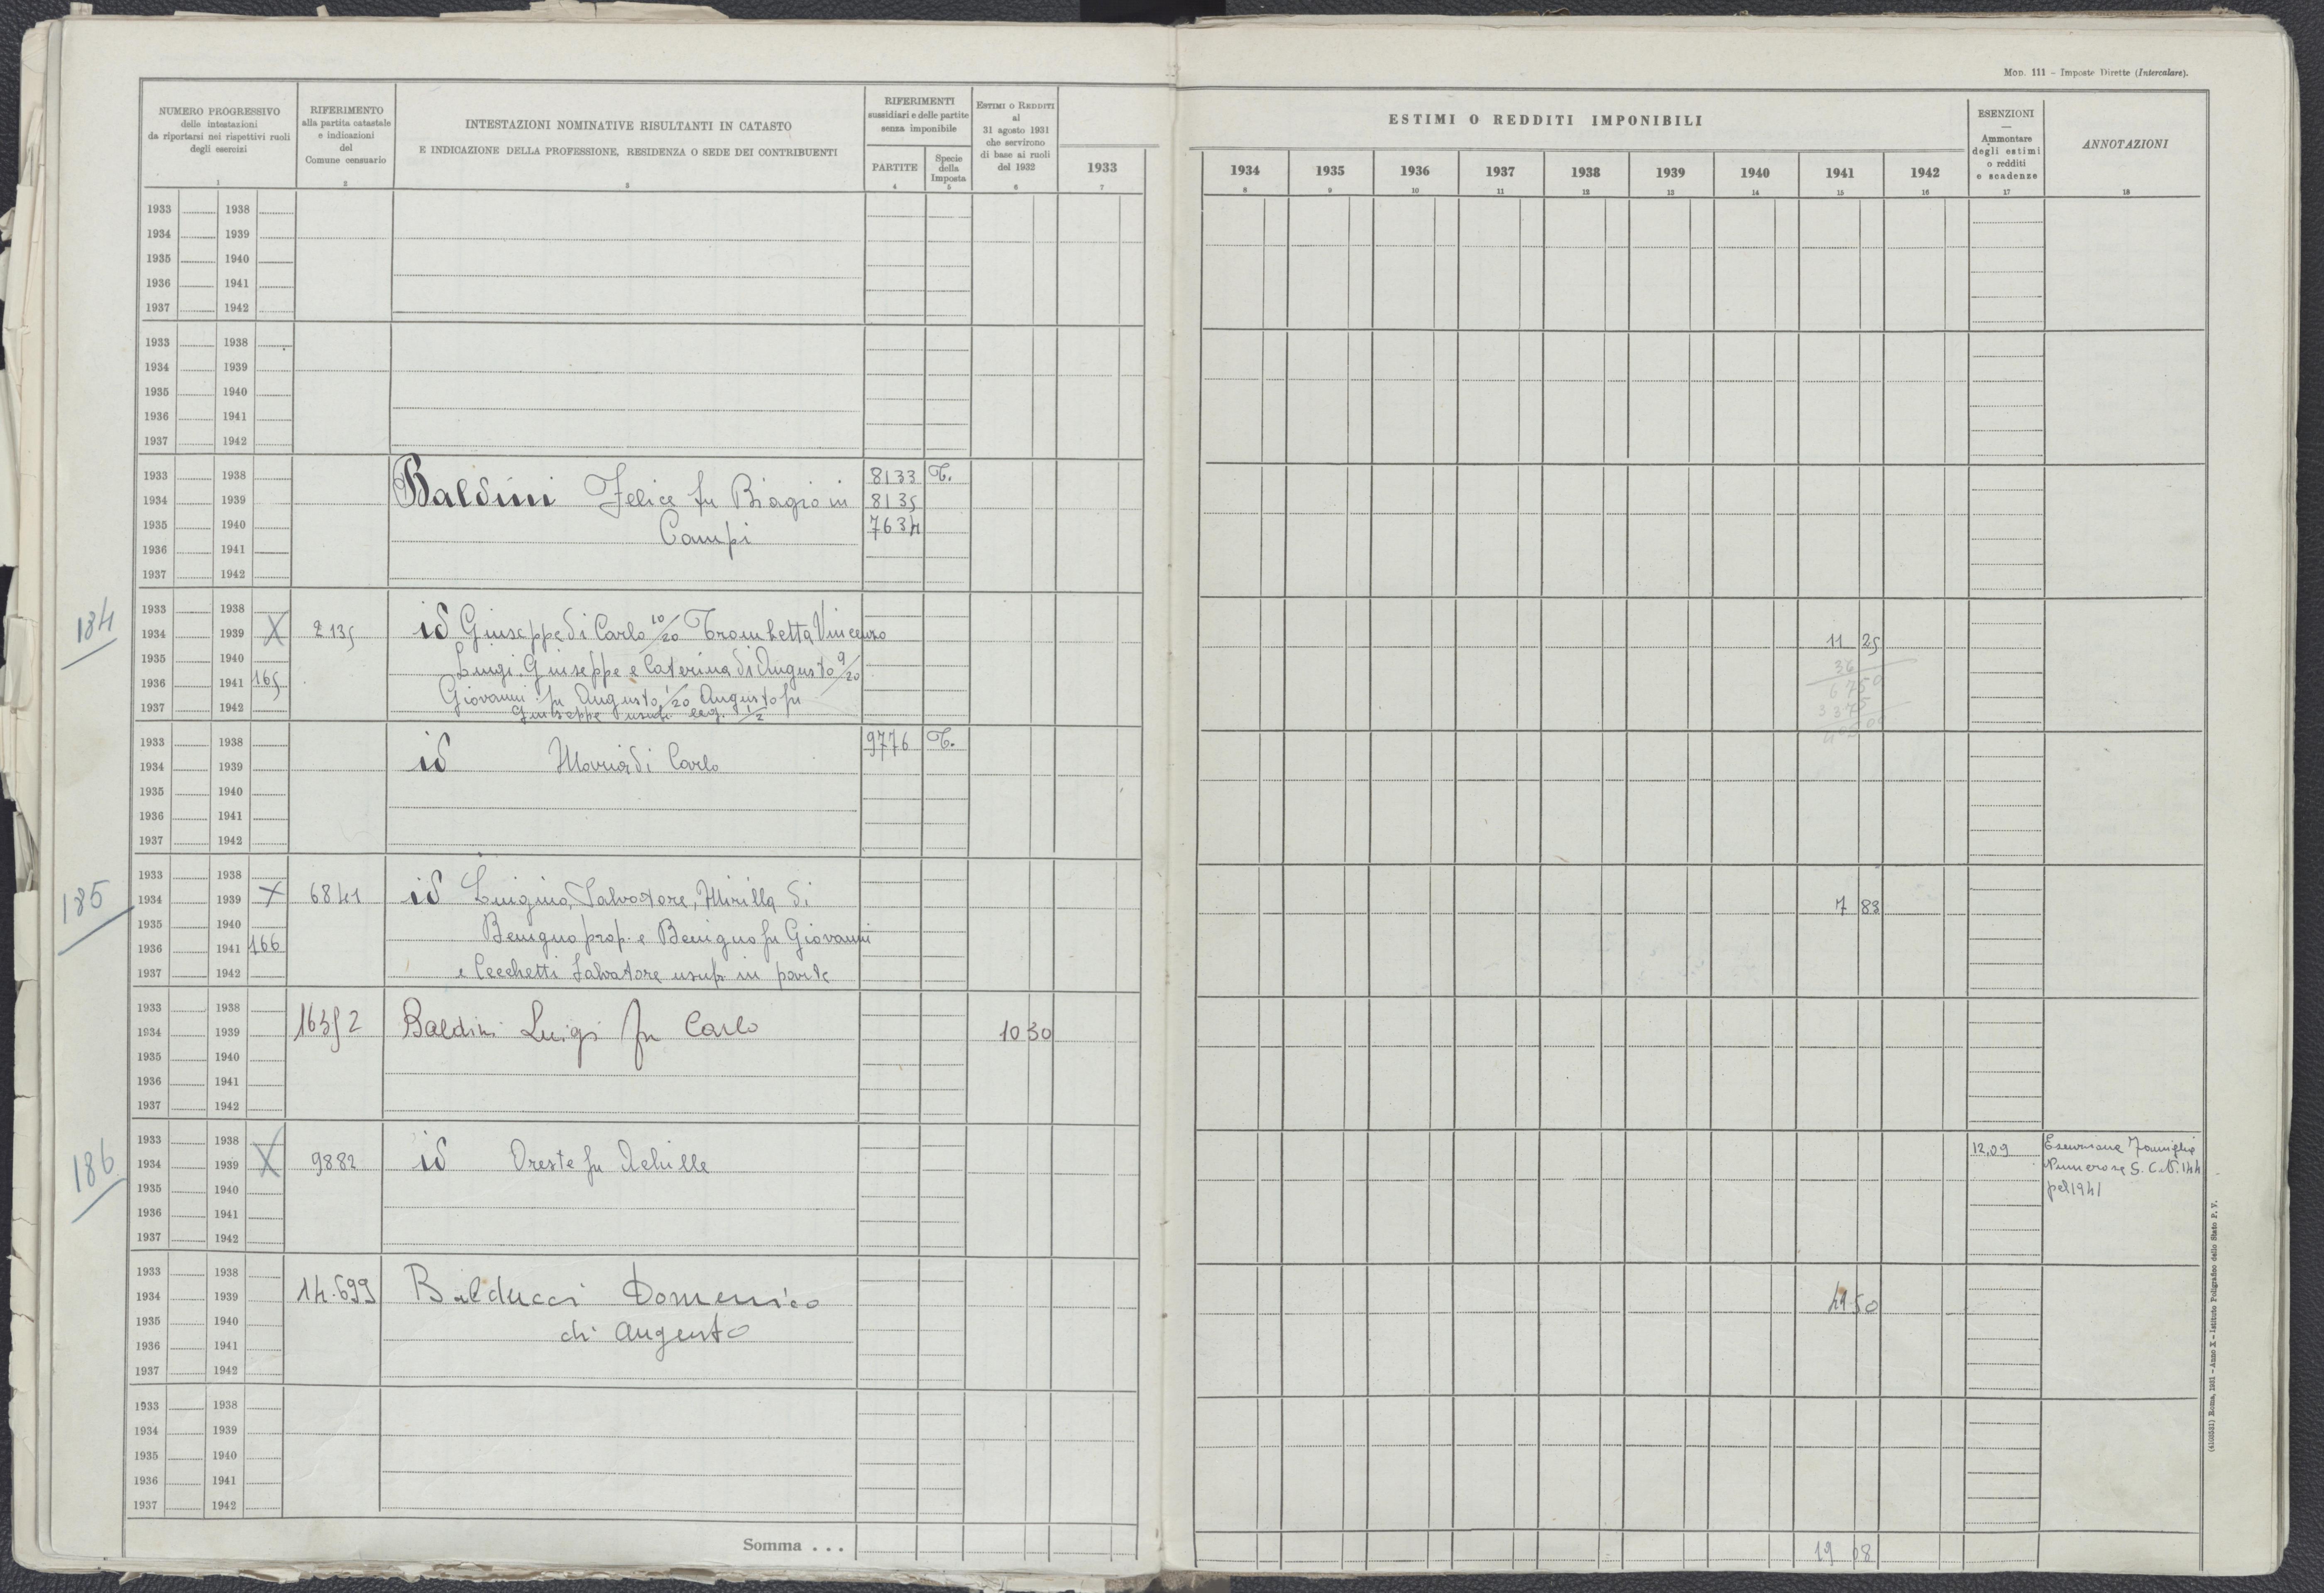 Mod. 111 - Imposte Dirette (Intercalare).
NUMERO PROGRESSIVO
delle intestazioni
da riportarsi nei rispettivi ruoli
degli esercizi
1
RIFERIMENTO
alla partita catastale
e indicazioni
del
Comune censuario
2
INTESTAZIONI NOMINATIVE RISULTANTI IN CATASTO
E INDICAZIONE DELLA PROFESSIONE, RESIDENZA O SEDE DEI CONTRIBUENTI
3
RIFERIMENTI
sussidiari e delle partite
senza imponibile
PARTITE
4
Specie
della
Imposta
5
Estimi o Redditi
al
31 agosto 1931
che servirono
di base ai ruoli
del 1932
6
1933
7
ESTIMI O REDDITI IMPONIBILI
1934 1935 1936 1937 1938 1939 1940 1941 1942
8 9 10 11 12 13 14 15 16
ESENZIONI
—
Ammontare
degli estimi
o redditi
e scadenze
17
ANNOTAZIONI
18
1933 1938
1934 1939
1935 1940
1936 1941
1937 1942
1933 1938
1934 1939
1935 1940
1936 1941
1937 1942
1933 1938 8133 T.
1934 1939 Baldini Felice fu Biagio in 8135
1935 1940 Campi 7634
1936 1941
1937 1942
184
1933 1938
1934 1939 X 2135 id Giuseppe di Carlo 10/20 Trombetta Vincenzo 11 25
1935 1940 Luigi, Giuseppe e Caterina di Augusto 9/20 36
1936 1941 165 Giovanni fu Augusto 1/20 Augusto fu 6750
1937 1942 Giuseppe usuf. leg. 1/2 3375
40500
1933 1938 9776 T.
1934 1939 id Maria di Carlo
1935 1940
1936 1941
1937 1942
185
1933 1938
1934 1939 X 6841 id Luigino, Salvatore, Mirilla di 7 83
1935 1940 Benigno prop. e Benigno fu Giovanni
1936 1941 166
1937 1942 e Cecchetti Salvatore usuf. in parte
1933 1938
1934 1939 16352 Baldini Luigi fu Carlo 10 30
1935 1940
1936 1941
1937 1942
186
1933 1938 12,09 Esenzione Famiglie
1934 1939 X 9882 id Oreste fu Achille Numerose S. C. N. 144
1935 1940 pel 1941
1936 1941
1937 1942
1933 1938
1934 1939 14.699 Balducci Domenico 41 50
1935 1940 di Augusto
1936 1941
1937 1942
1933 1938
1934 1939
1935 1940
1936 1941
1937 1942
Somma . . . 19 08
(4103531) Roma, 1931 - Anno X - Istituto Poligrafico dello Stato P. V.